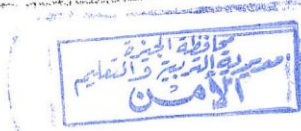 محافظة الجيزة
مديرية التربية والتعليم
الأمن